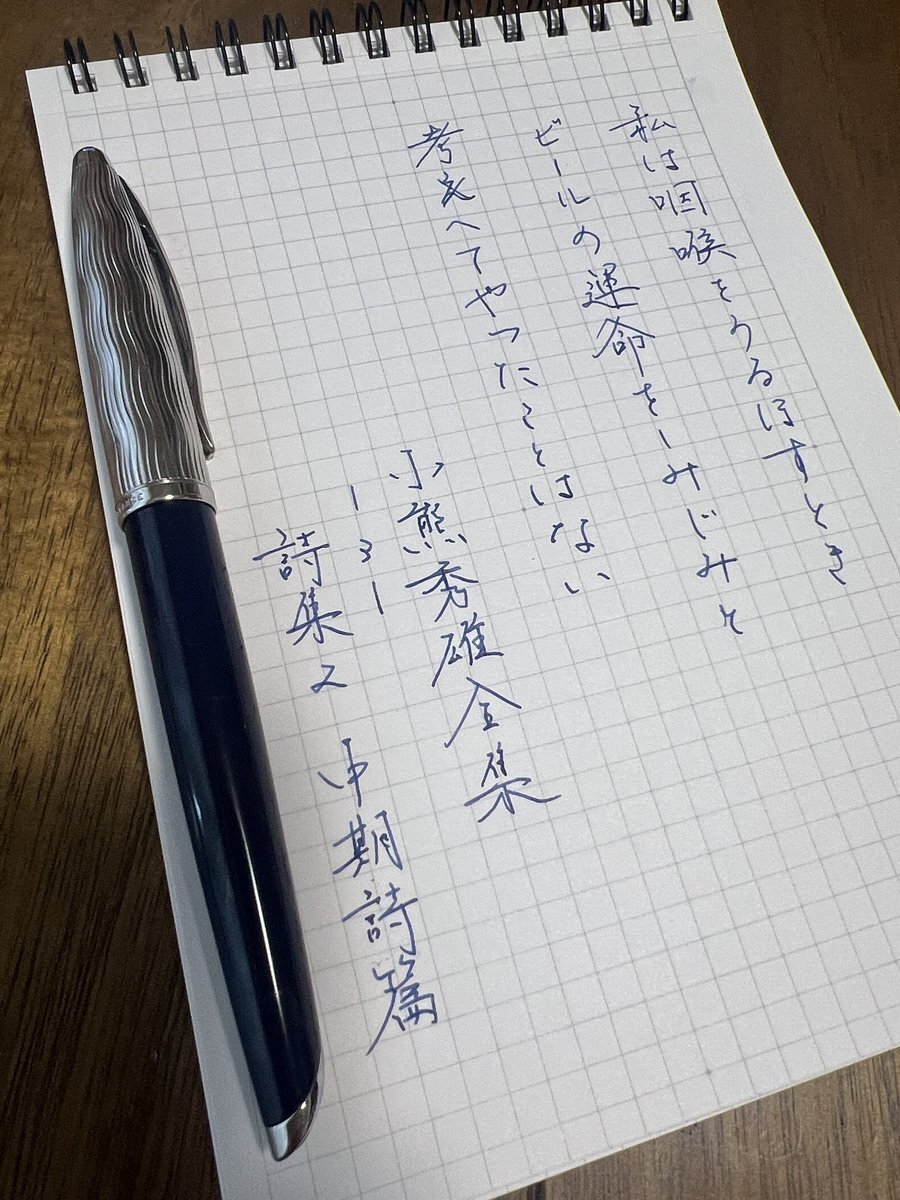 私は咽喉をうるほすとき
ビールの運命をしみじみと
考えへてやつたことはない
小熊秀雄全集
-3-
詩集2 中期詩篇